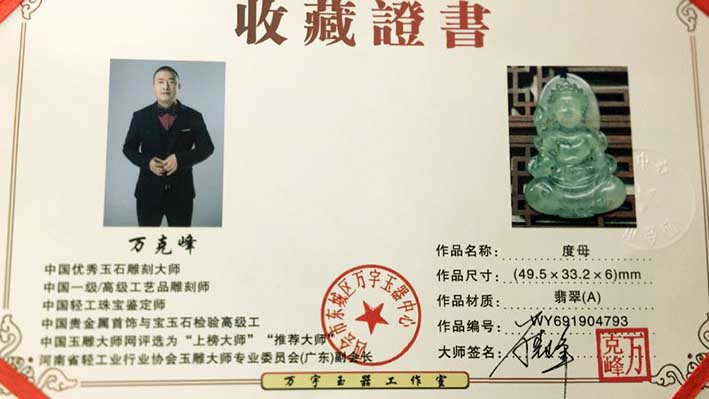 收藏證書
万克峰
中国优秀玉石雕刻大师
中国一级/高级工艺品雕刻师
中国轻工珠宝鉴定师
中国贵金属首饰与宝玉石检验高级工
中国玉雕大师网评选为“上榜大师”“推荐大师”
河南省轻工业行业协会玉雕大师专业委员会(广东)副会长
会市东城区万字玉器中心
作品名称: 度母
作品尺寸: (49.5×33.2×6)mm
作品材质: 翡翠(A)
作品编号: WY691904793
大师签名:
万克峰
万字玉器工作室